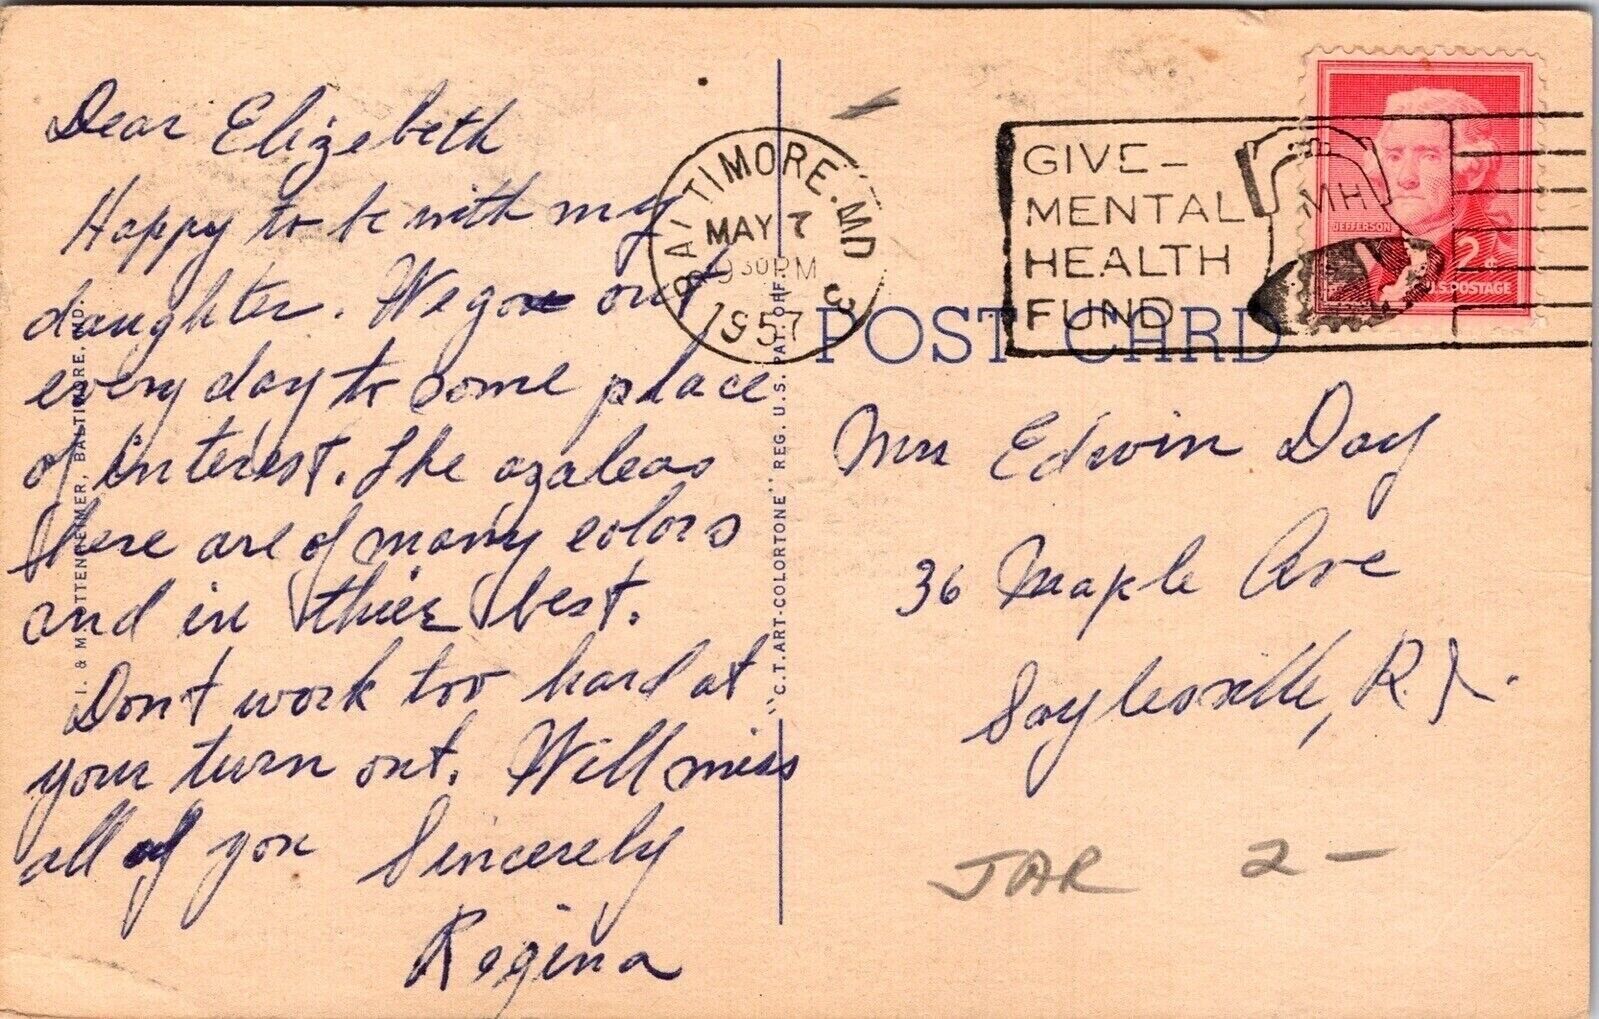 Dear Elizebeth
Happy to be with my
daughter. We go out
every day to some place
of interest. The azaleas
here are of many colors
and in thier best.
Don't work too hard at
your turn out. Will miss
all of you Sincerely
Regina
I. & M. OTTENHEIMER, BALTIMORE, MD.
"C.T. ART-COLORTONE" REG. U.S. PAT. OFF.
BALTIMORE. MD
MAY 7
930PM
1957
3
GIVE-
MENTAL
HEALTH
FUND
MH
JEFFERSON
2¢
U.S. POSTAGE
POST CARD
Mrs Edwin Day
36 Maple Ave
Saylesville, R.I.
JAR 2-